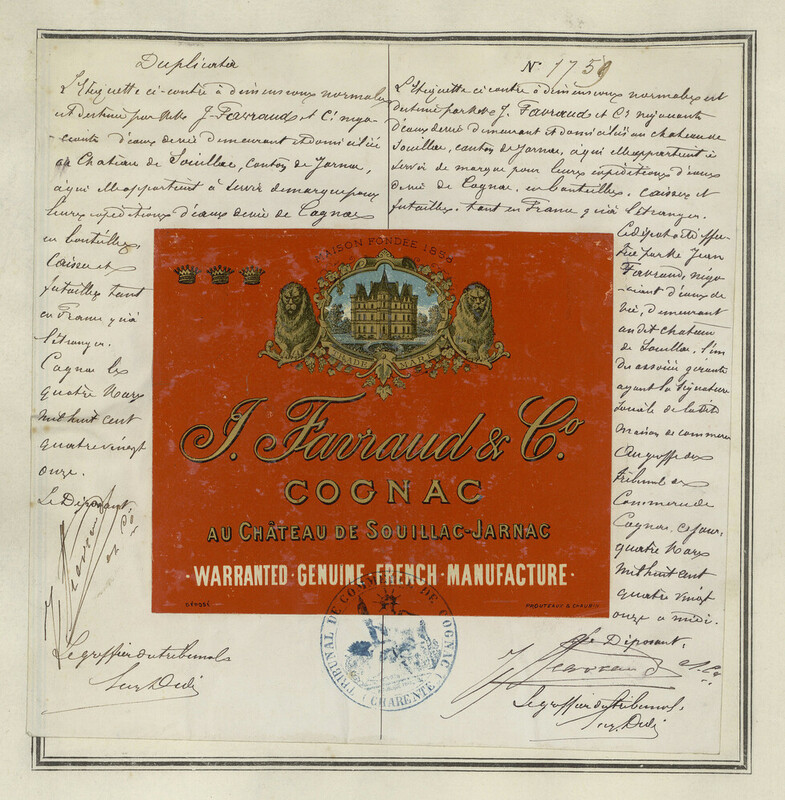 Duplicata
L'Etiquette ci-contre à dimensions normales
est destinée par MM. J. Favraud et Cie négo-
ciants d'eaux de vie demeurant et domiciliés
au Chateau de Souillac, canton de Jarnac,
à qui elle appartient à servir de marque pour
leurs expéditions d'eaux de vie de Cognac
en bouteilles,
Caisses et
futailles tant
en France qu'à
l'étranger.
Cognac le
quatre Mars
mil huit cent
quatre vingt
onze.
Le Déposant
J. Favraud et Co
Le greffier du tribunal
N° 1759
L'Etiquette ci-contre à dimensions normales est
destinée par MM. J. Favraud et Cie négociants
d'eaux de vie demeurant et domiciliés au chateau de
Souillac, canton de Jarnac, à qui elle appartient à
servir de marque pour leurs expéditions d'eaux
de vie de Cognac, en bouteilles, caisses et
futailles, tant en France qu'à l'étranger.
Ce dépôt a été effec-
tué par Mr Jean
Favraud, négo-
ciant d'eaux de
vie, demeurant
au dit chateau
de Souillac, l'un
des associés gérants
ayant la signature
sociale de la dite
maison de commerce
Au greffe du
tribunal de
Commerce de
Cognac, ce jour
quatre Mars
mil huit cent
quatre vingt
onze à midi.
Le Déposant,
J. Favraud & Co
Le greffier du tribunal,
MAISON FONDÉE 1858
TRADE MARK
J. Favraud & Co.
COGNAC
AU CHÂTEAU DE SOUILLAC-JARNAC
·WARRANTED·GENUINE·FRENCH·MANUFACTURE·
DÉPOSÉ
TRIBUNAL DE COMMERCE DE COGNAC
(CHARENTE)